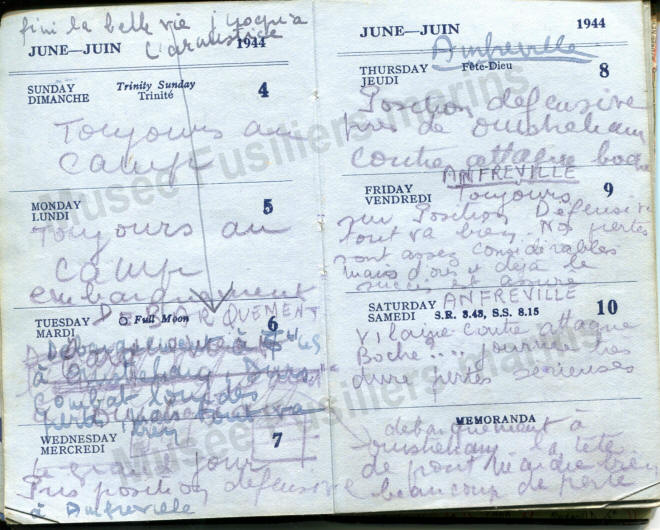 fini la belle vie jusqu'à
l'armistice
JUNE—JUIN 1944
SUNDAY Trinity Sunday 4
DIMANCHE Trinité
Toujours au
camp
MONDAY 5
LUNDI
Toujours au
camp
embarquement
DEBARQUEMENT
TUESDAY Full Moon 6
MARDI
Débarquement à
à Ouistreham Durs
combat lourdes
pertes mais tout va
bien
WEDNESDAY 7
MERCREDI
le grand jour
Pris position défensive
à Amfreville
JUNE—JUIN 1944
Amfreville
THURSDAY Fête-Dieu 8
JEUDI
Position défensive
près de Ouistreham
contre attaque boche
ANFREVILLE
FRIDAY 9
VENDREDI
Toujours
sur Position Défensive
tout va bien. Nos pertes
sont assez considérables
mais d'ors et déjà le
succès est assuré
ANFREVILLE
SATURDAY S.R. 3.43, S.S. 8.15 10
SAMEDI
Vilaine contre attaque
Boche .... journée très
dure pertes sérieuses
MEMORANDA
débarquement à
Ouistreham la tête
de pont
beaucoup de perte
Musée Fusiliers marins
Musée Fusiliers marins